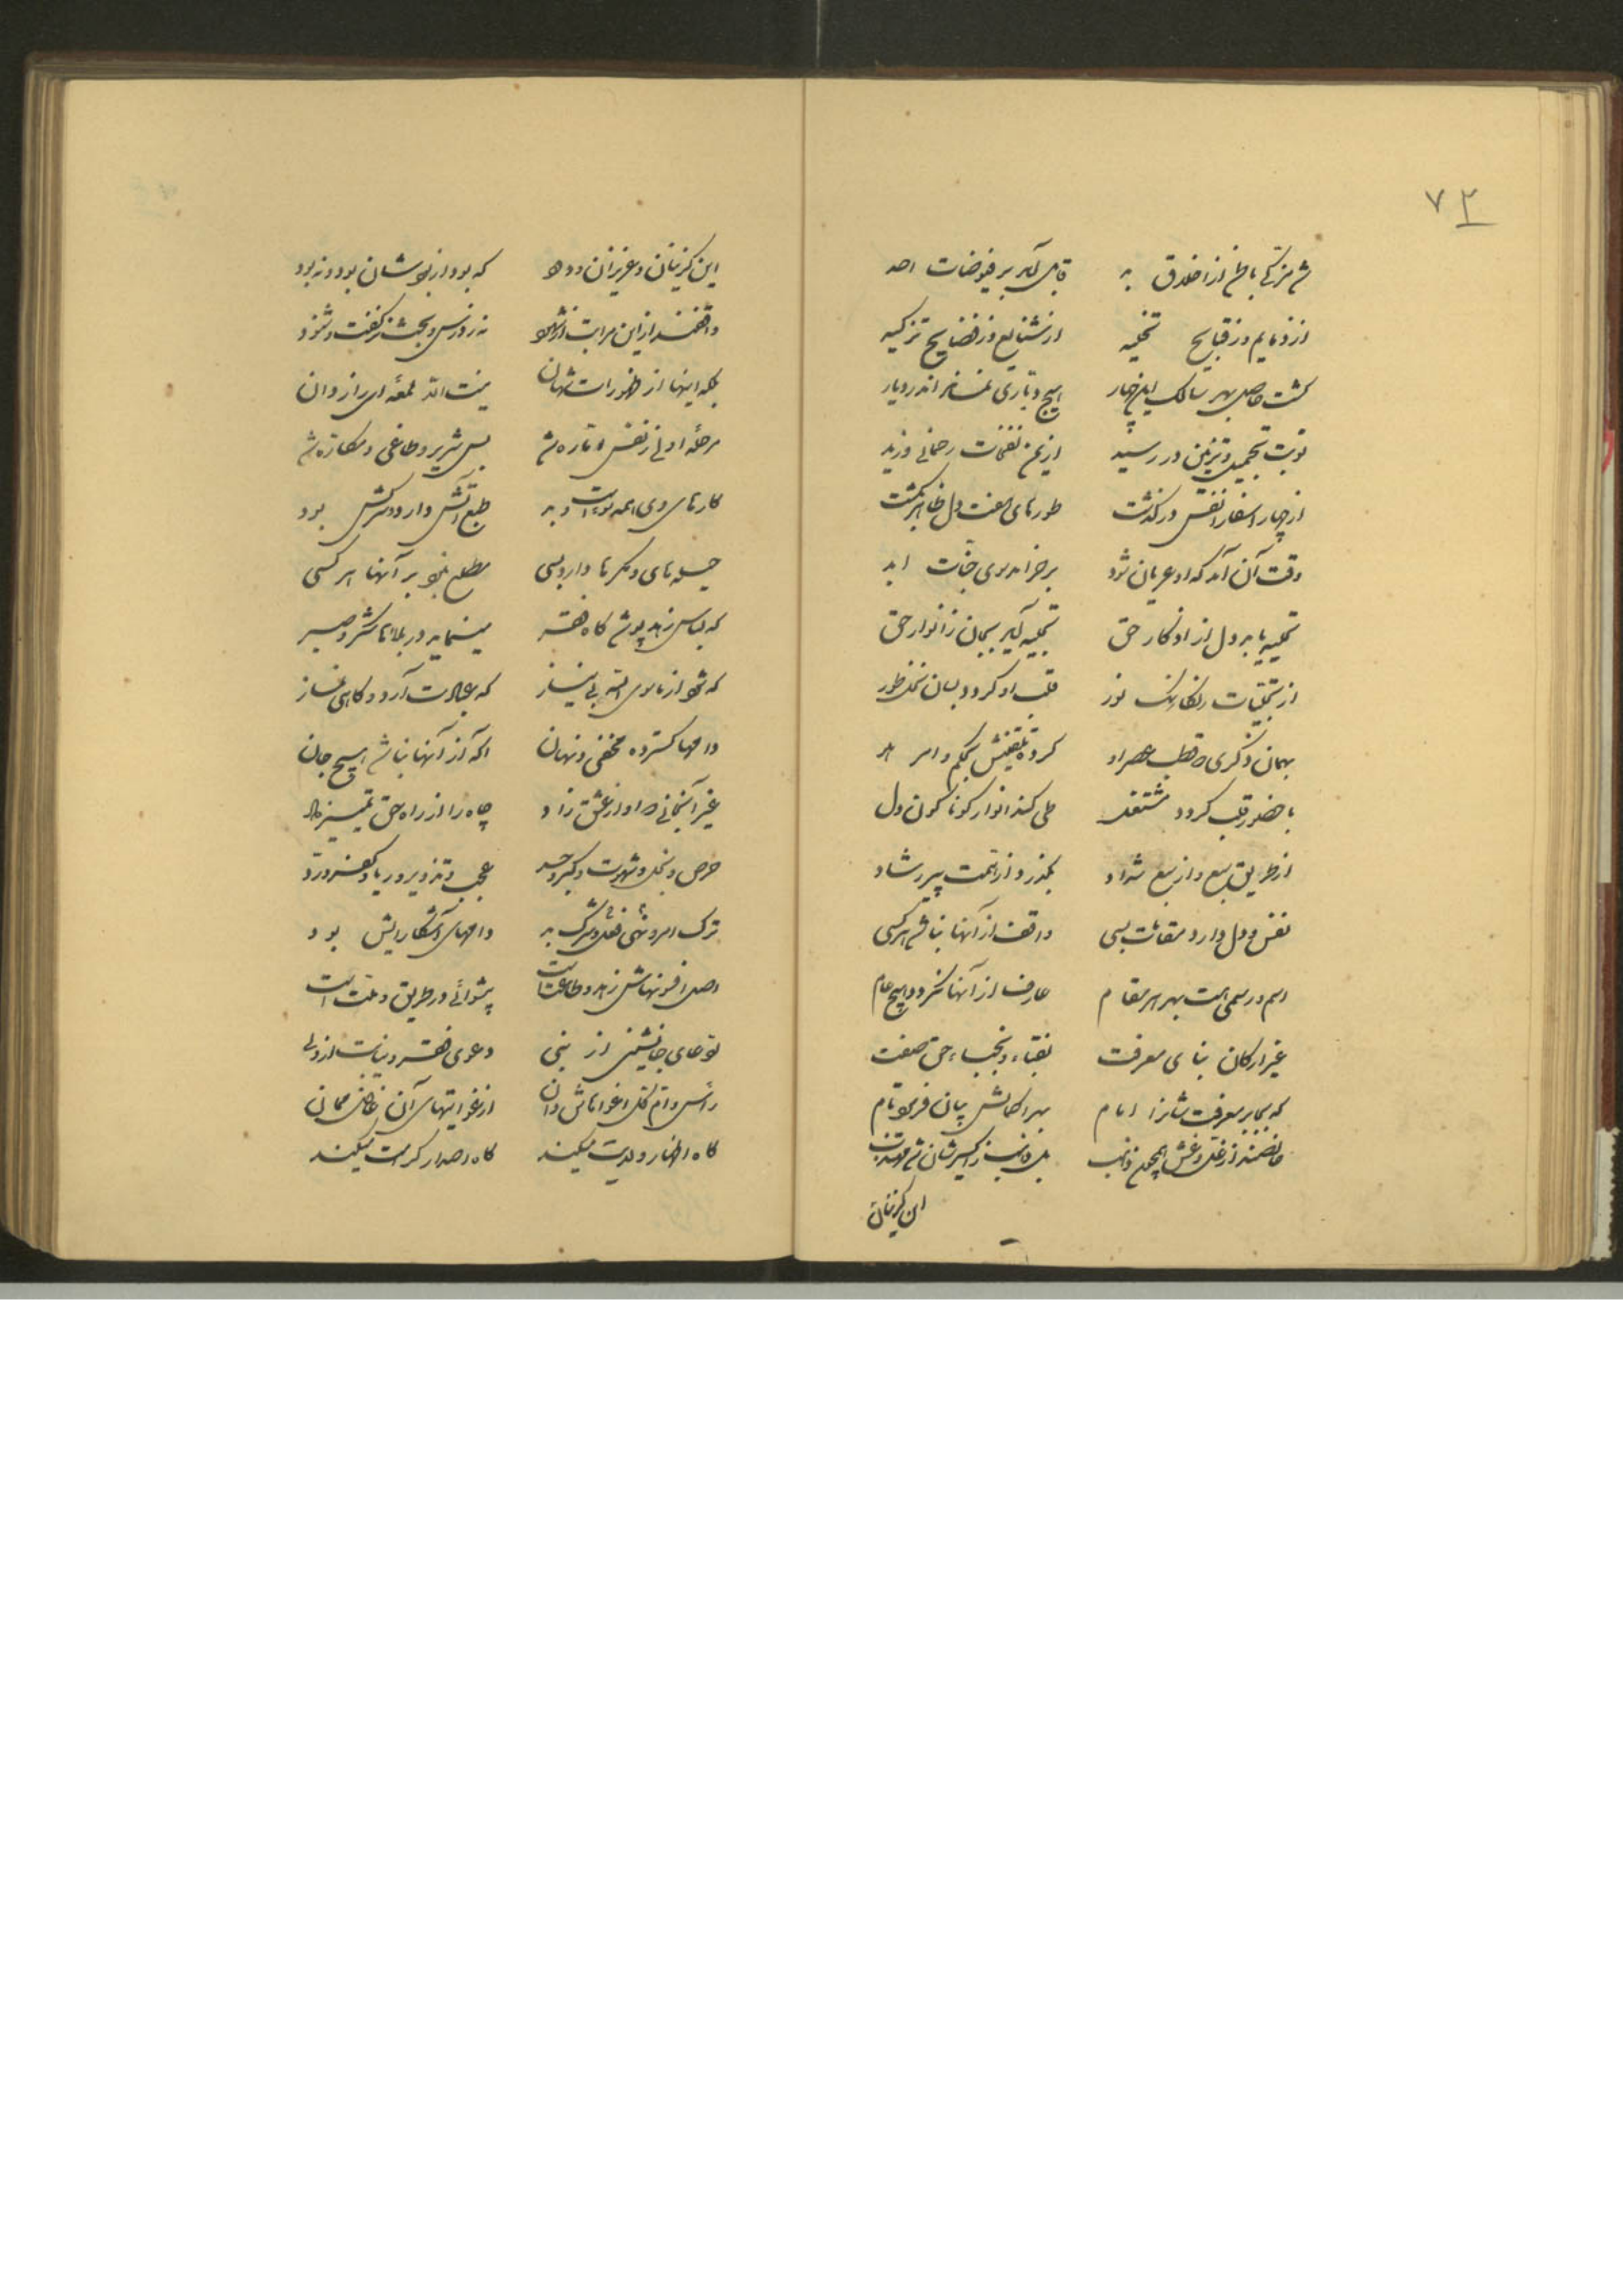 ۷۳
شد مزکی باطن از اخلاق بد قابل آمد بر فیوضات احد
از ذمایم وز قبایح تخلیه از شنایع وز فضایح تزکیه
گشت حاصل بهر سالک این چهار هیچ دیاری نماند اندر دیار
نوبت تجمیل و تزیین در رسید از یمن نفخات رحمانی وزید
از چهار اسفار نفس درگذشت طورهای هفت دل ظاهر گشت
وقت آن آمد که او عریان شود برخرامد سوی جنات ابد
تحلیه یابد دل از اذکار حق تجلیه آید بجان ز انوار حق
از تجلیات رنگارنگ نور قلب او گردد بسان نخل طور
بهمان ذکری که قطب عصر او کرده تلقینش بحکم و امر هو
با حضور قلب گردد مشتغل طی کند انوار گوناگون دل
از طریق سبع و از سبع شداد بگذرد از همت پیر رشاد
نفس و دل دارد مقامات بسی واقف از آنها نباشد هر کسی
اسم و رسمی هست بهر هر مقام عارف از آنها نگردد هیچ عام
غیر ارکان بنای معرفت نقباء و نجباء حق صفت
که بمابر معرفت شانرا امام بهر اکمالش بیان فرمود تام
خالصند از غل و غش همچون ذهب
این کریمان
این کریمان و عزیزان ودود که بود از بودشان بود و نه بود
واقفند از این مراتب از شهود نه ز درس و بحث و ز گفت و شنود
بلکه اینها از ظهورات شهان نیست الا لمعه‌ای راز دان
مرحله اولی ز نفس اماره شد بس شریر و طاغی و مکاره شد
کارهای وی همه سوء است و بد طبع آتش دارد و سرکش بود
حیله‌های و مکرها دارد بسی مطلع نبود بر آنها هر کسی
که لباس زهد پوشد گاه فقر مینماید در بلاها شکر و صبر
که شود از ماسوی الله بی نیاز که عبادت آرد و گاهی نماز
دامها گسترده مخفی و نهان آگه از آنها نباشد هیچ جان
غیر آنجانی که او از عشق زاد چاه را از راه حق تمییز داد
حرص و بخل و شهوت و کبر و حسد عجب و تزویر و ریا و کفر و رد
ترک امر و نهی و فعل شرک بد دامهای آشکارایش بود
اصل افسونهاش زهد و طاعت است پیشوائی در طریق و ملت است
ادعای جانشینی از نبی دعوی فقر و نیابت از ولی
رأس و ام کل اغواهاش دان از غوایتهای آن غافل ممان
گاه اظهار ولایت میکند گاه اصدار کرامت میکند